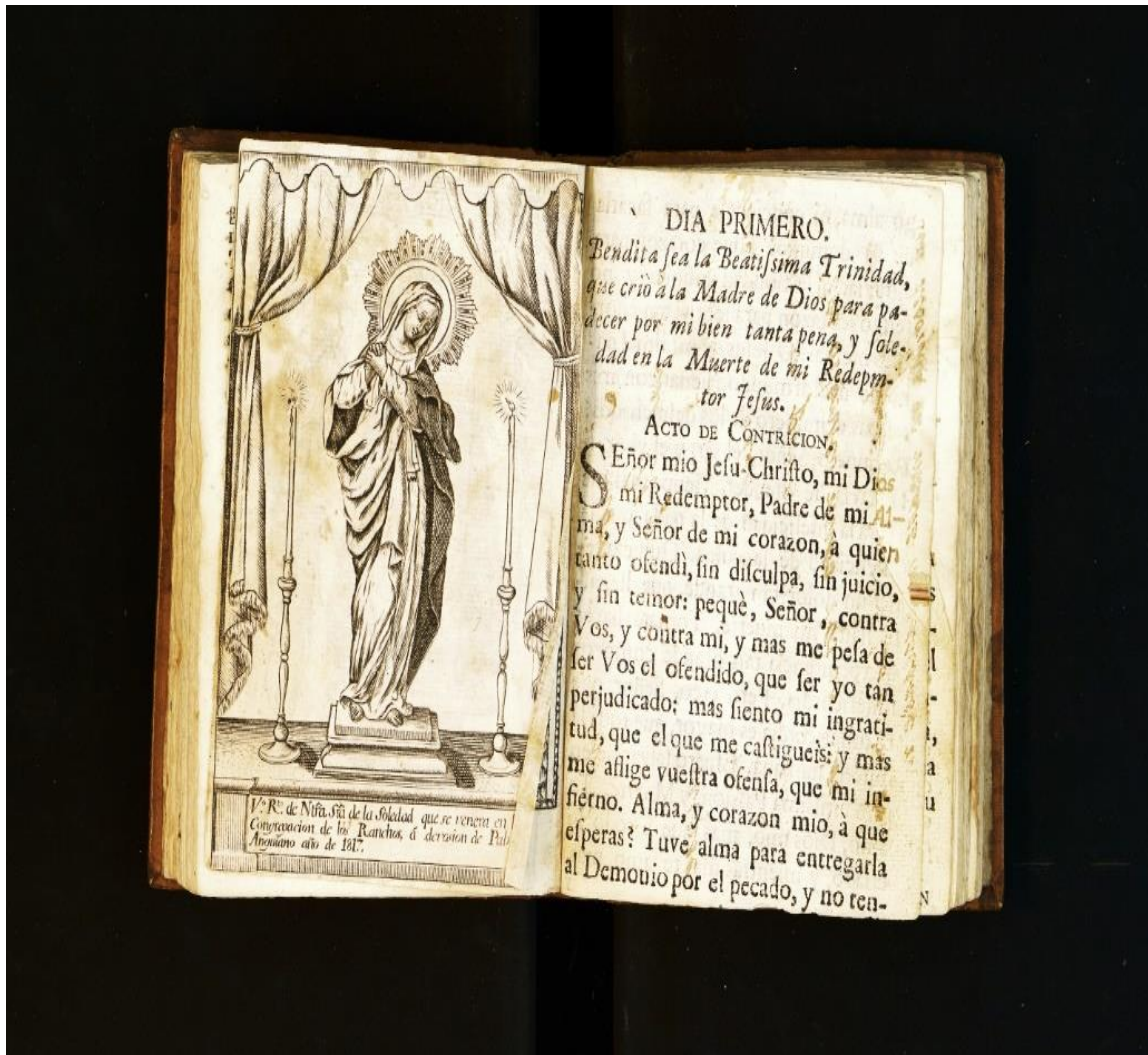 V.º R.to de Ntrã. Srã de la Soledad que se venera en
Congregacion de los Ranchos, á devosion de
Anguiano año de 1817.
DIA PRIMERO.
Bendita ſea la Beatiſsima Trinidad,
que criò à la Madre de Dios para pa-
decer por mi bien tanta pena, y ſole-
dad en la Muerte de mi Redepm-
tor Jeſus.
ACTO DE CONTRICION.
SEñor mio Jeſu-Chriſto, mi Dios
mi Redemptor, Padre de mi Al-
ma, y Señor de mi corazon, à quien
tanto ofendì, ſin diſculpa, ſin juicio,
y ſin temor: pequè, Señor, contra
Vos, y contra mi, y mas me peſa de
ſer Vos el ofendido, que ſer yo tan
perjudicado; mas ſiento mi ingrati-
tud, que el que me caſtigueis: y mas
me aflige vueſtra ofenſa, que mi in-
fierno. Alma, y corazon mio, à que
eſperas? Tuve alma para entregarla
al Demonio por el pecado, y no ten-